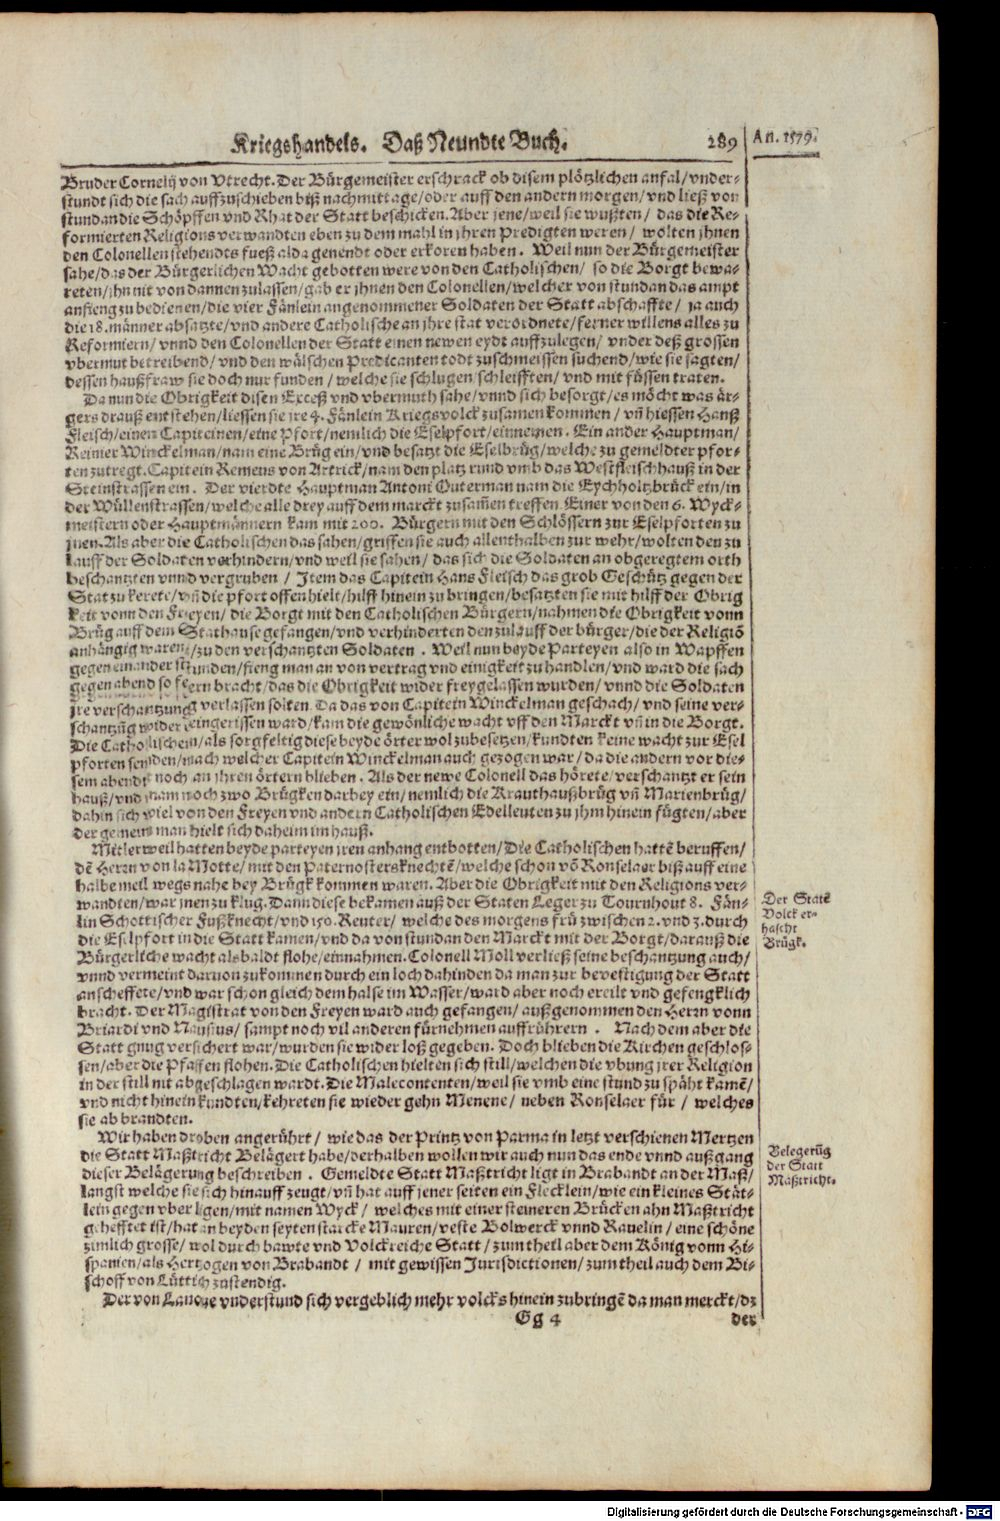 Kriegshandels. Daß Neundte Buch. 289
An. 1579.
Bruder Cornelij von Vtrecht. Der Bürgemeister erschrack ob disem plötzlichen anfal/vnder-
stundt sich die sach auffzuschieben biß nachmittage/oder auff den andern morgen/vnd ließ von
stund an die Schöpffen vnd Rhat der Statt beschicken. Aber jene/weil sie wußten/ das die Re-
formierten Religions verwandten eben zu dem mahl in jhren Predigten weren/ wolten jhnen
den Colonellen stehendts fueß alda genendt oder erkoren haben. Weil nun der Bürgemeister
sahe/das der Bürgerlichen Wacht gebotten were von den Catholischen/ so die Borgt bewa-
reten/jhn nit von dannen zulassen/gab er jhnen den Colonellen/welcher von stundan das ampt
anfieng zu bedienen/die vier Fänlein angenommener Soldaten der Statt abschaffte/ ja auch
die 18. männer absatzte/vnd andere Catholische an jhre stat verordnete/ferner willens alles zu
Reformiern/ vnnd den Colonellen der Statt einen newen eydt auffzulegen/ vnder deß grossen
vbermut betreibend/vnd den wälschen Predicanten todt zuschmeissen suchend/wie sie sagten/
dessen haußfraw sie doch nur funden/welche sie schlugen/schleifften/ vnd mit füssen traten.
Da nun die Obrigkeit disen Exceß vnd vbermuth sahe/vnnd sich besorgt/es möcht was är-
gers drauß entstehen/liessen sie jre 4. Fänlein Kriegsvolck zusamen kommen/ vñ hiessen Hanß
Fleisch/einen Capiteinen/eine Pfort/nemlich die Eselpfort/einnemen. Ein ander Hauptman/
Reinier Winckelman/nam eine Brüg ein/vnd besatzt die Eselbrüg/welche zu gemeldter pfor-
ten zutregt. Capitein Remeus von Artrick/nam den platz rund vmb das Westfleischhauß in der
Steinstrassen ein. Der vierdte Hauptman Antoni Outerman nam die Eychholtzbrück ein/in
der Wüllenstrassen/welche alle drey auff dem marckt zusam̃en treffen. Einer von den 6. Wyck-
meistern oder Hauptmännern kam mit 200. Bürgern mit den Schlössern zur Eselpforten zu
jnen. Als aber die Catholischen das sahen/griffen sie auch allenthalben zur wehr/wolten den zu
lauff der Soldaten verhindern/vnd weil sie sahen/ das sich die Soldaten an obgeregtem orth
beschantzten vnnd vergruben/ Item das Capitein Hans Fleisch das grob Geschütz gegen der
Stat zu kerete/vñ die pfort offen hielt/hilff hinein zu bringen/besatzten sie mit hilff der Obrig
keit vonn den Freyen/ die Borgt mit den Catholischen Bürgern/nahmen die Obrigkeit vonn
Brüg auff dem Stathause gefangen/vnd verhinderten den zulauff der bürger/die der Religiõ
anhängig waren/zu den verschantzten Soldaten. Weil nun beyde Parteyen also in Wapffen
gegen einander stunden/fieng man an von vertrag vnd einigkeit zu handlen/vnd ward die sach
gegen abend so fern bracht/das die Obrigkeit wider freygelassen wurden/vnnd die Soldaten
jre verschantzung verlassen solten. Da das von Capitein Winckelman geschach/vnd seine ver-
schantzũg wider eingerissen ward/kam die gewönliche wacht vff den Marckt vñ in die Borgt.
Die Catholischen/als sorgfeltig diese beyde örter wol zubesetzen/kundten keine wacht zur Esel
pforten senden/nach welcher Capitein Winckelman auch gezogen war/da die andern vor die-
sem abendt noch an jhren örtern blieben. Als der newe Colonell das hörete/verschantzt er sein
hauß/vnd nam noch zwo Brügken darbey ein/nemlich die Krauthaußbrüg vñ Marienbrüg/
dahin sich viel von den Freyen vnd andern Catholischen Edelleuten zu jhm hinein fügten/aber
der gemein man hielt sich daheim im hauß.
Mitlerweil hatten beyde parteyen jren anhang entbotten/Die Catholischen hattẽ beruffen/
dẽ Herrn von la Motte/mit den Paternostersknechtẽ/welche schon võ Ronselaer biß auff eine
halbe meil wegs nahe bey Brügk kommen waren. Aber die Obrigkeit mit den Religions ver-
wandten/war jnen zu klug. Dann diese bekamen auß der Staten Leger zu Tournhout 8. Fän-
lin Schottischer Fußknecht/vnd 150. Reuter/ welche des morgens frü zwischen 2. vnd 3. durch
die Eselpfort in die Statt kamen/vnd da von stundan den Marckt mit der Borgt/darauß die
Bürgerliche wacht als baldt flohe/einnahmen. Colonell Moll verließ seine beschantzung auch/
vnnd vermeint daruon zukommen durch ein loch dahinden da man zur bevestigung der Statt
anscheffete/vnd war schon gleich dem halse im Wasser/ward aber noch ereilt vnd gefengklich
bracht. Der Magistrat von den Freyen ward auch gefangen/ außgenommen den Herrn vonn
Briardi vnd Nansius/ sampt noch vil anderen fürnehmen auffrührern. Nach dem aber die
Statt gnug versichert war/wurden sie wider loß gegeben. Doch blieben die Kirchen geschlos-
sen/aber die Pfaffen flohen. Die Catholischen hielten sich still/welchen die vbung jrer Religion
in der still nit abgeschlagen wardt. Die Malecontenten/weil sie vmb eine stund zu späht kamẽ/
vnd nicht hinein kundten/kehreten sie wieder gehn Menene/ neben Ronselaer für/ welches
sie abbrandten.
Wir haben droben angerührt/ wie das der Printz von Parma in letzt verschienen Mertzen
die Statt Maßtricht Belägert habe/derhalben wollen wir auch nun das ende vnnd außgang
dieser Belägerung beschreiben. Gemeldte Statt Maßtricht ligt in Brabandt an der Maß/
langst welche sie sich hinauff zeugt/vñ hat auff jener seiten ein Flecklein/wie ein kleines Stät-
lein gegen vber ligen/mit namen Wyck/ welches mit einer steineren Brücken ahn Maßtricht
gehefftet ist/hat an beyden seyten starcke Mauren/veste Bolwerck vnnd Rauelin/eine schöne
zimlich grosse/wol durchbawte vnd Volckreiche Statt/zum theil aber dem König vonn Hi-
spanien/als Hertzogen von Brabandt/ mit gewissen Jurisdictionen/zum theil auch dem Bi-
schoff von Lüttich zustendig.
Der von Lanoye vnderstund sich vergeblich mehr volcks hinein zubringẽ da man merckt/dz
Gg 4 der
Der Statẽ
Volck er-
hascht
Brügk.
Belegerũg
der Statt
Maßtricht.
Digitalisierung gefördert durch die Deutsche Forschungsgemeinschaft - DFG